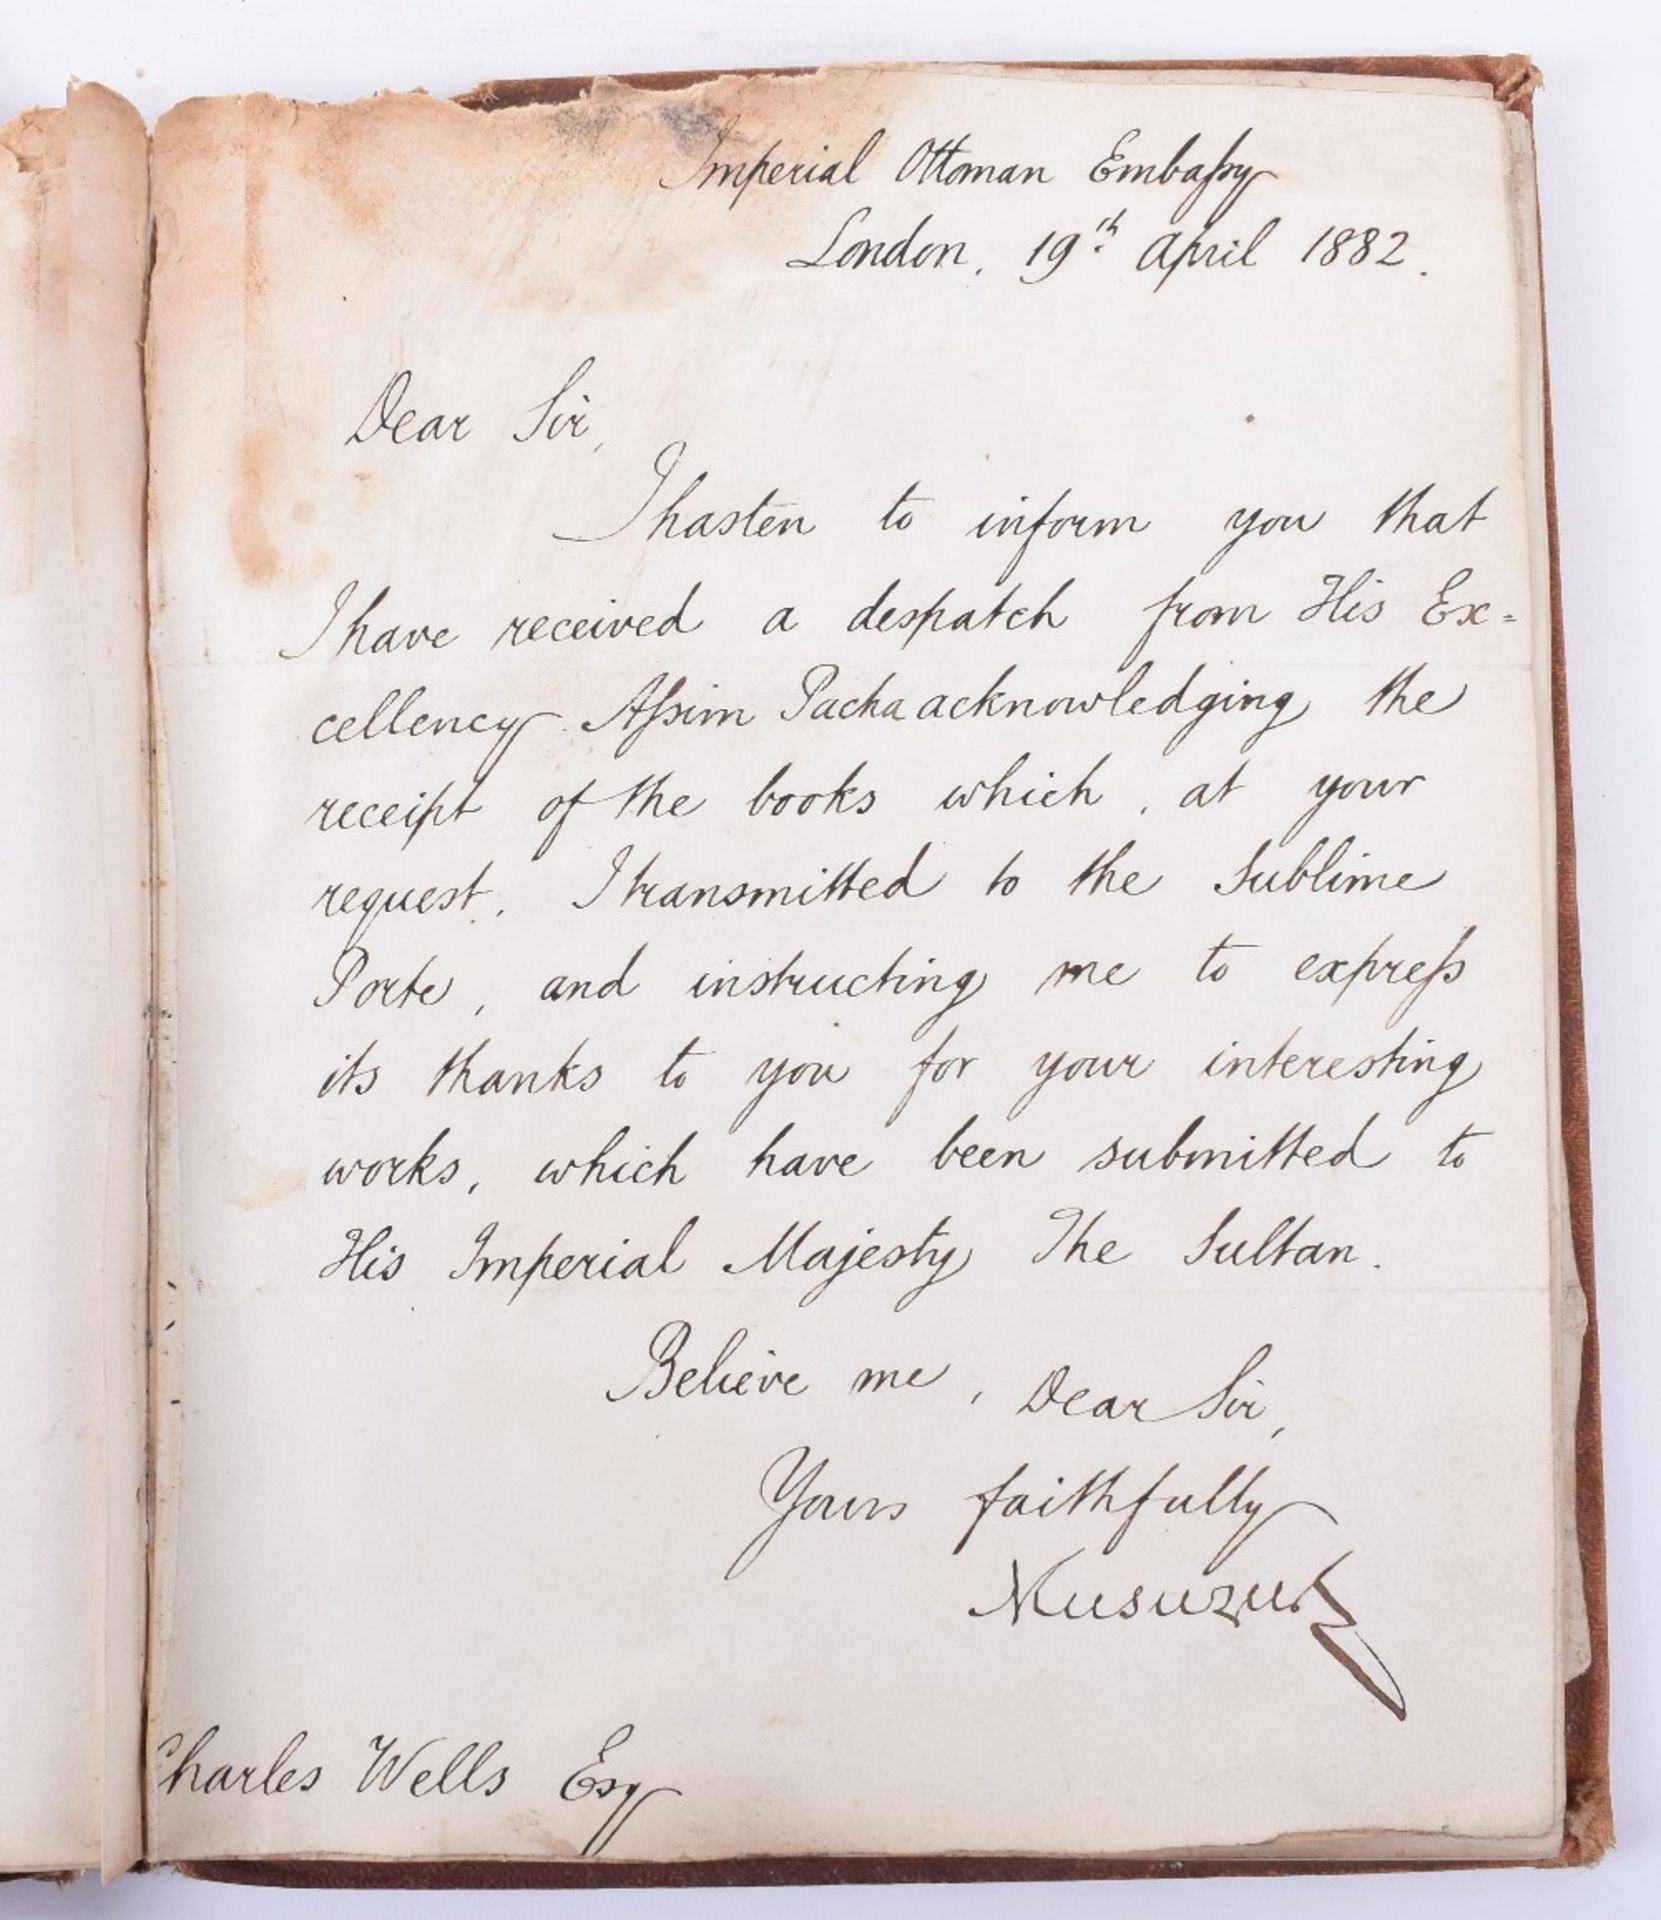 Imperial Ottoman Embaſsy
London, 19th April 1882.
Dear Sir,
I hasten to inform you that
I have received a despatch from His Ex=
cellency Aſsim Pacha acknowledging the
receipt of the books which, at your
request, I transmitted to the Sublime
Porte, and instructing me to expreſs
its thanks to you for your interesting
works, which have been submitted to
His Imperial Majesty The Sultan.
Believe me, Dear Sir,
Yours faithfully
Musurus
Charles Wells Esq